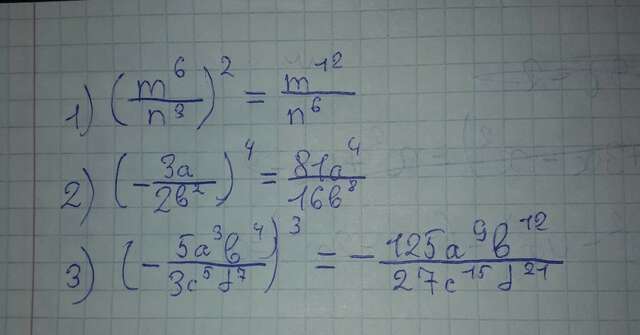 1) (m^6/n^3)^2 = m^12/n^6
2) (-3a/2b^2)^4 = 81a^4/16b^8
3) (-5a^3b^4/3c^5d^7)^3 = -125a^9b^12/27c^15d^21